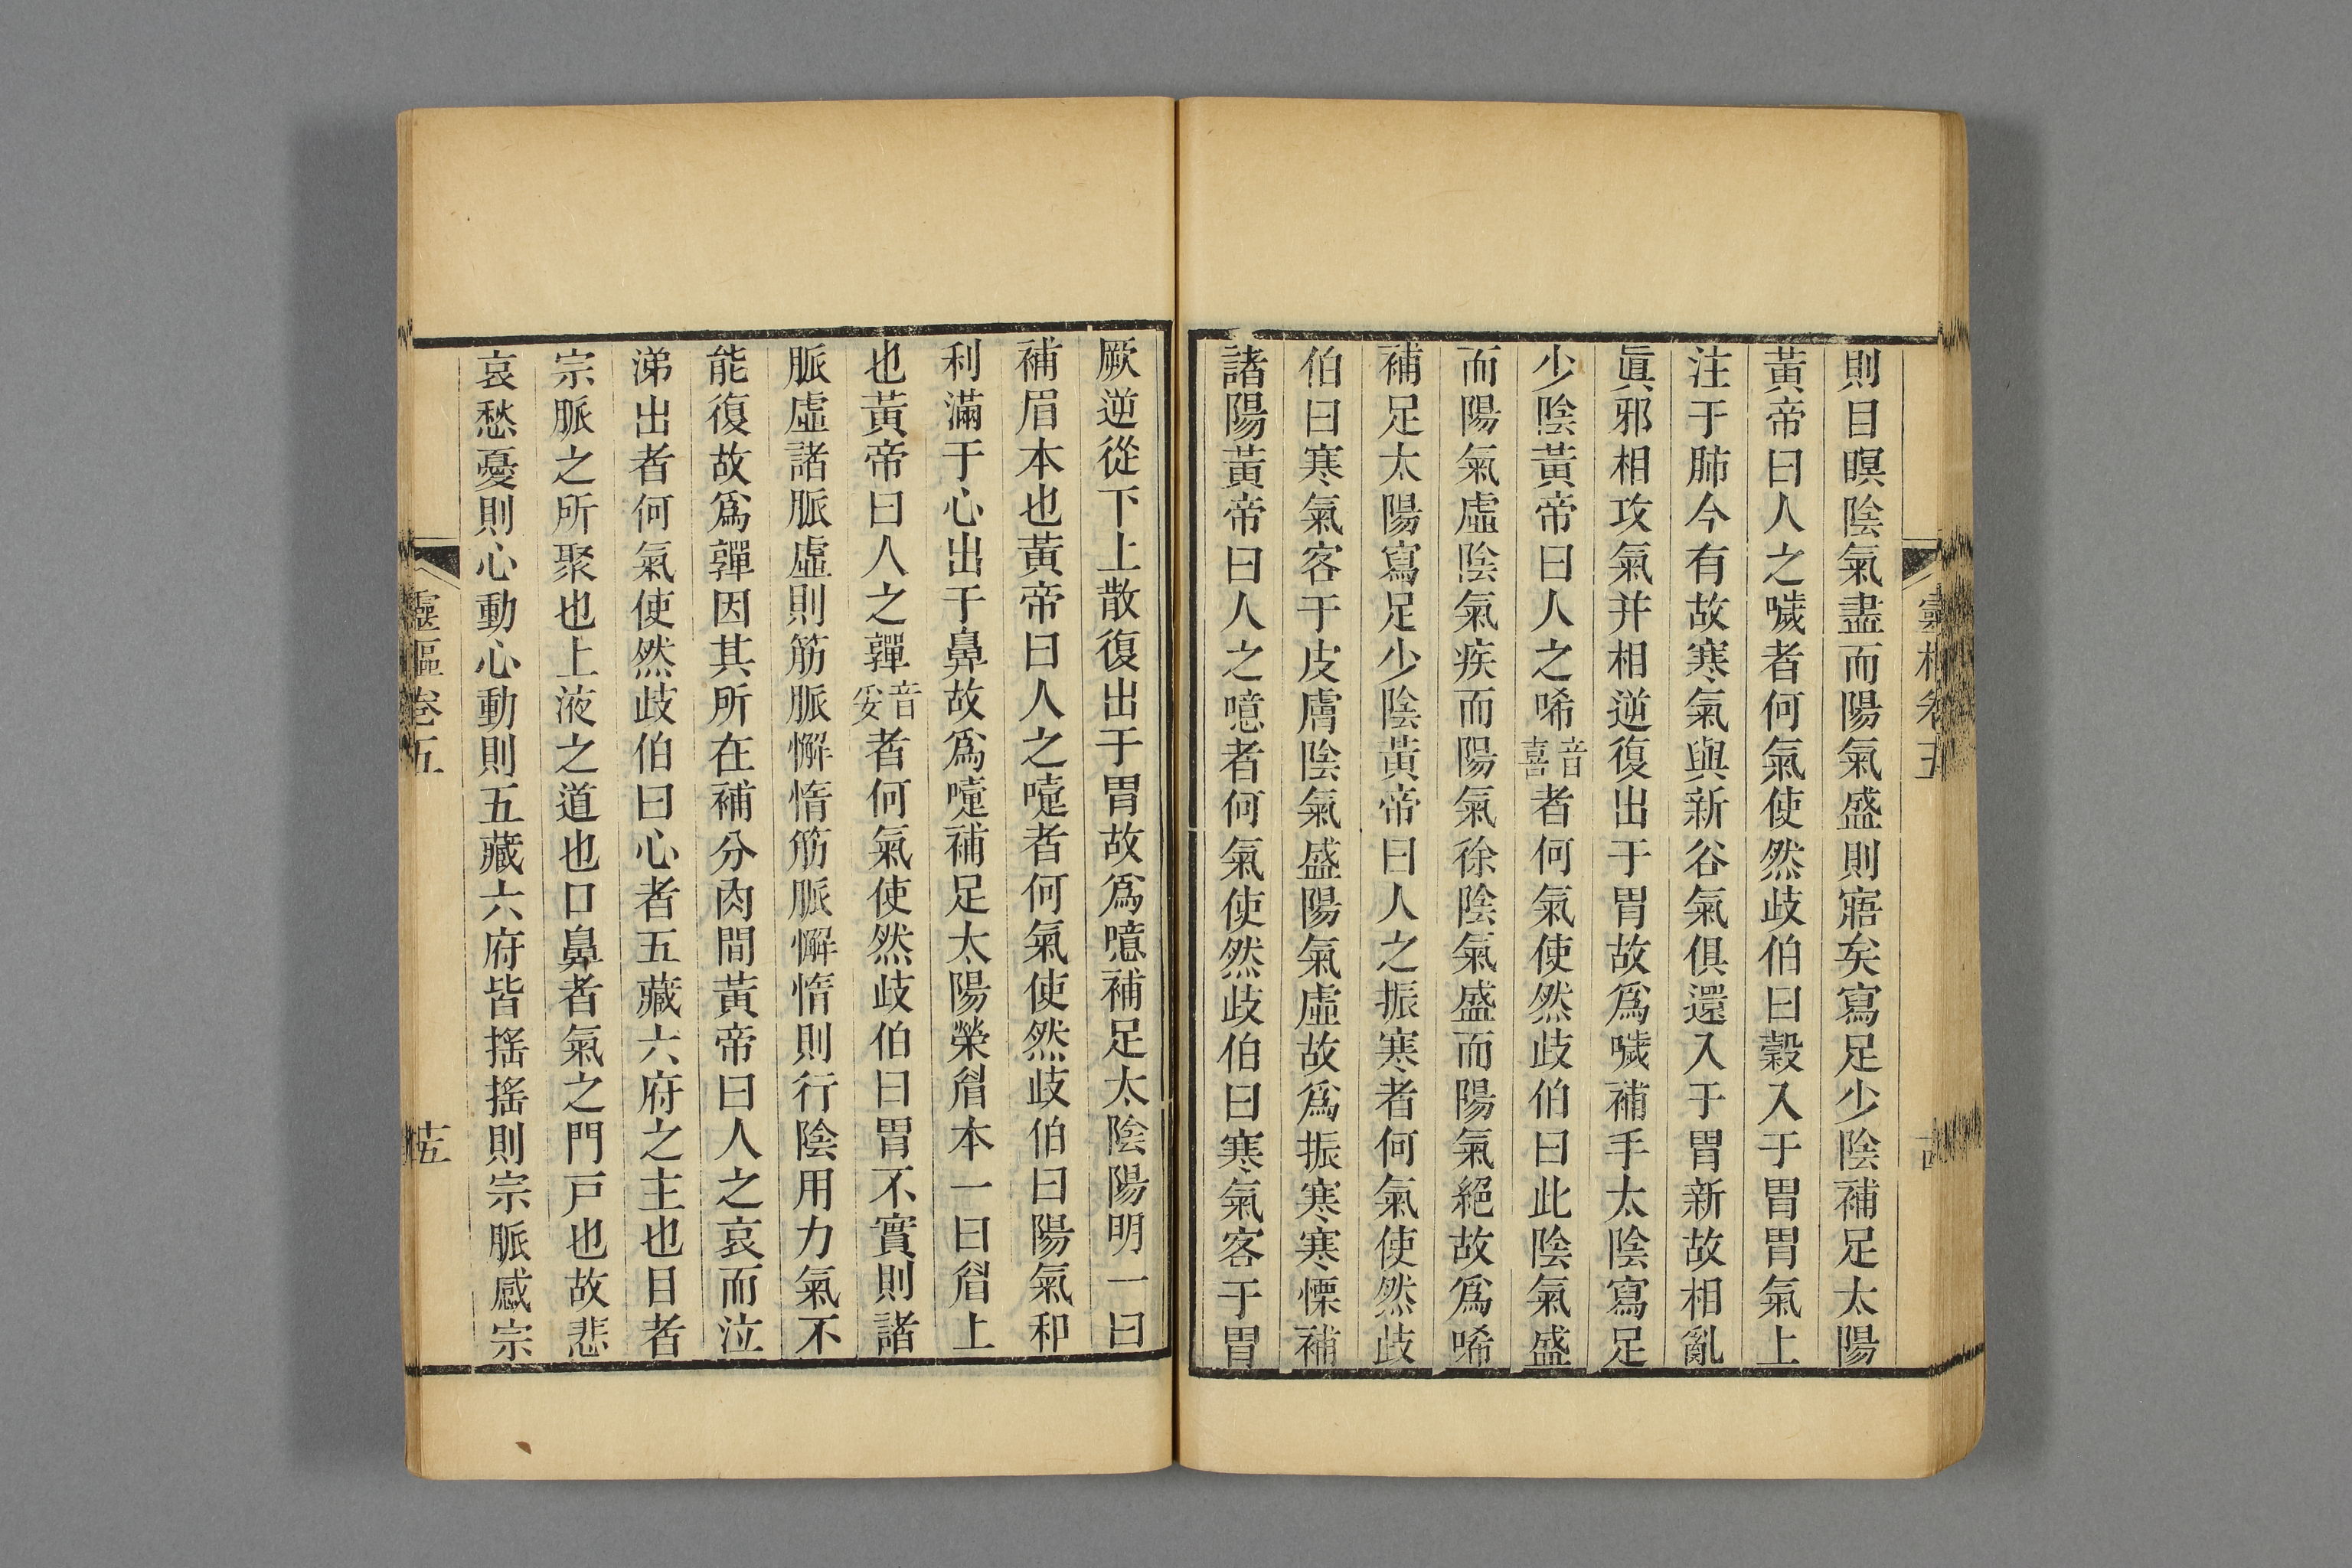 則目瞑陰氣盡而陽氣盛則寤矣寫足少陰補足太陽
黃帝曰人之噦者何氣使然歧伯曰穀入于胃胃氣上
注于肺今有故寒氣與新谷氣俱還入于胃新故相亂
眞邪相攻氣并相逆復出于胃故爲噦補手太陰寫足
少陰黃帝曰人之唏音喜者何氣使然歧伯曰此陰氣盛
而陽氣虛陰氣疾而陽氣徐陰氣盛而陽氣絕故爲唏
補足太陽寫足少陰黃帝曰人之振寒者何氣使然歧
伯曰寒氣客于皮膚陰氣盛陽氣虛故爲振寒寒慄補
諸陽黃帝曰人之噫者何氣使然歧伯曰寒氣客于胃
厥逆從下上散復出于胃故爲噫補足太陰陽明一曰
補眉本也黃帝曰人之嚏者何氣使然歧伯曰陽氣和
利滿于心出于鼻故爲嚏補足太陽榮眉本一曰眉上
也黃帝曰人之嚲音妥者何氣使然歧伯曰胃不實則諸
脈虛諸脈虛則筋脈懈惰筋脈懈惰則行陰用力氣不
能復故爲嚲因其所在補分肉間黃帝曰人之哀而泣
涕出者何氣使然歧伯曰心者五藏六府之主也目者
宗脈之所聚也上液之道也口鼻者氣之門戸也故悲
哀愁憂則心動心動則五藏六府皆搖搖則宗脈感宗
靈樞卷五